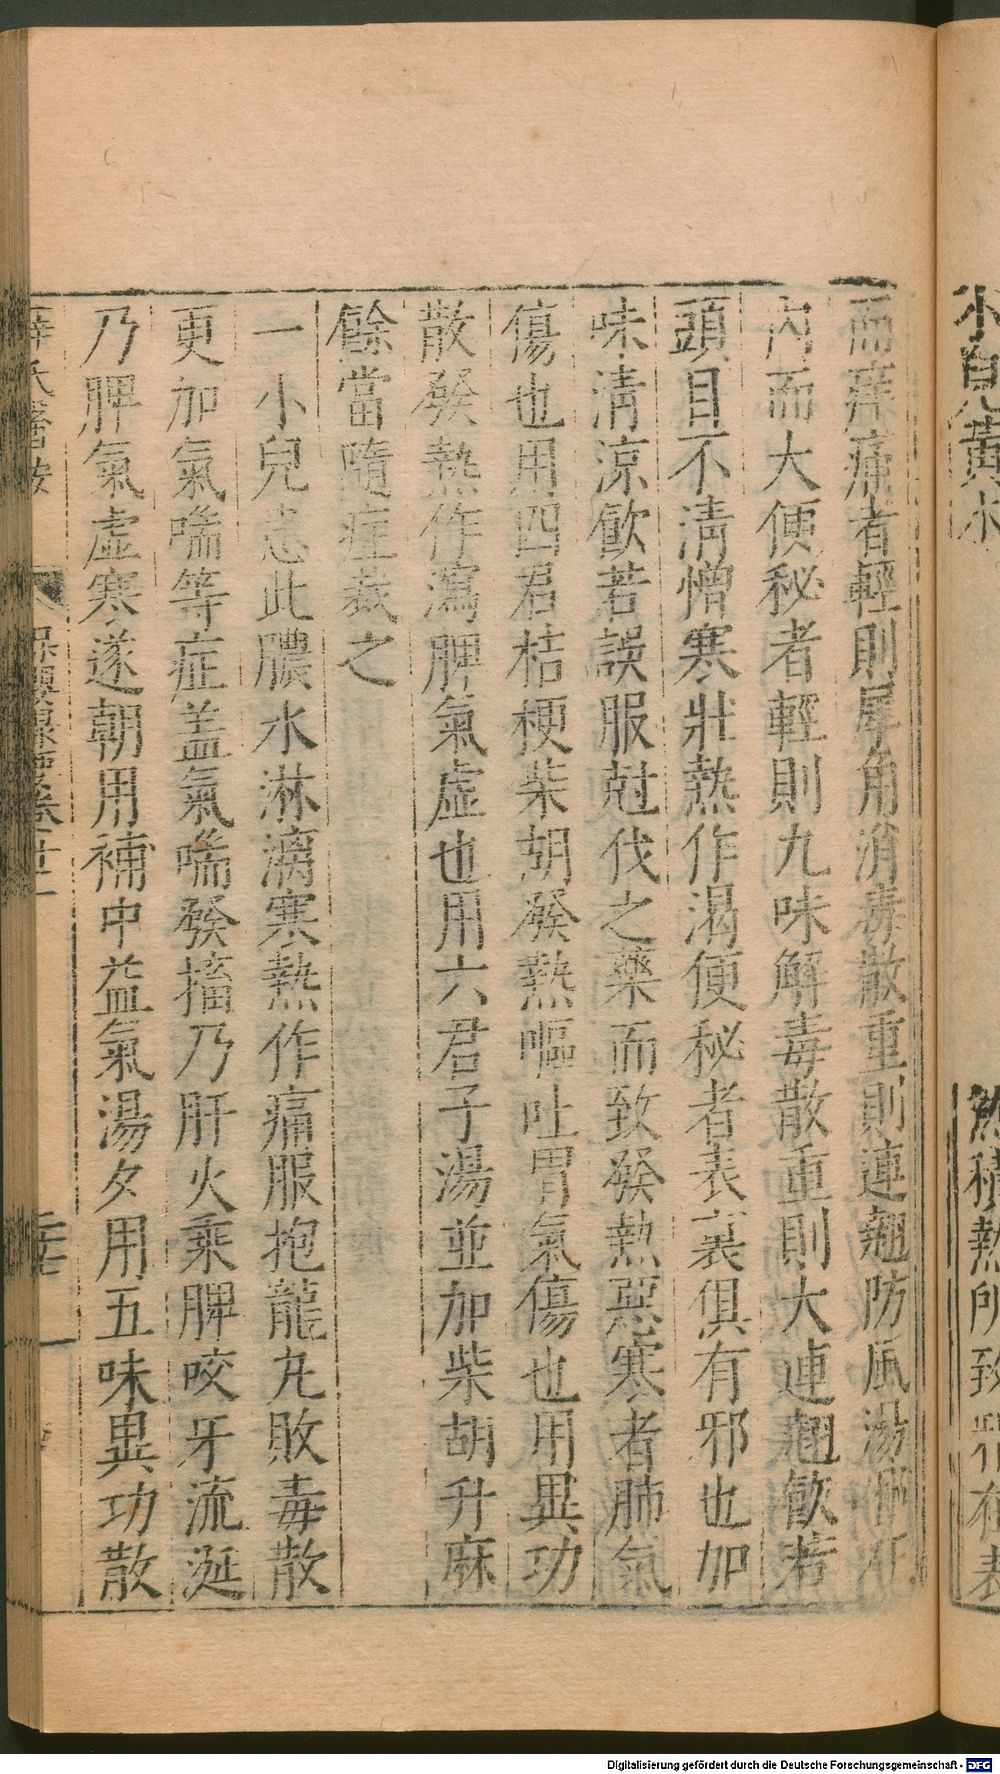 小兒黃水
熱積熱所致邪在表
而痒痛者輕則犀角消毒散重則連翹防風湯邪在
內而大便秘者輕則九味解毒散重則大連翹飲若
頭目不清憎寒壯熱作渴便秘者表裏俱有邪也加
味清凉飲若誤服尅伐之藥而致發熱惡寒者肺氣
傷也用四君桔梗柴胡發熱嘔吐胃氣傷也用異功
散發熱作瀉脾氣虛也用六君子湯並加柴胡升麻
餘當隨症裁之
一小兒患此膿水淋漓寒熱作痛服抱龍丸敗毒散
更加氣喘等症盖氣喘發搐乃肝火乘脾咬牙流涎
乃脾氣虛寒遂朝用補中益氣湯夕用五味異功散
薛氏醫按
保嬰撮要卷十二
Digitalisierung gefördert durch die Deutsche Forschungsgemeinschaft - DFG